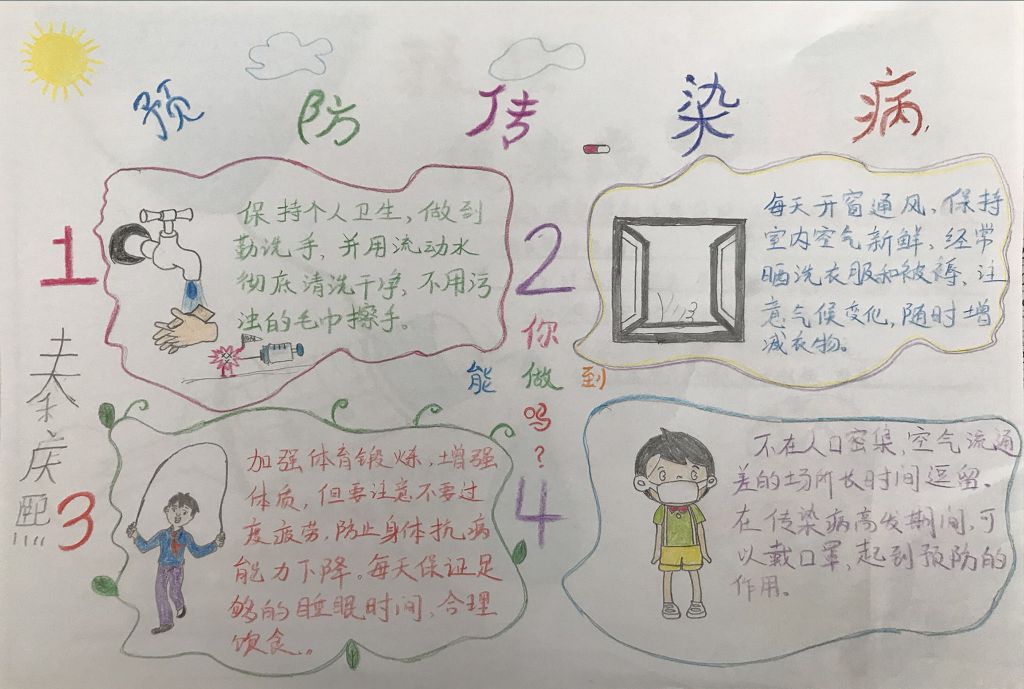 预防传染病
1
保持个人卫生，做到
勤洗手，并用流动水
彻底清洗干净，不用污
浊的毛巾擦手。
2
每天开窗通风，保持
室内空气新鲜，经常
晒洗衣服和被褥，注
意气候变化，随时增
减衣物。
你
能做到
吗？
3
加强体育锻炼，增强
体质，但要注意不要过
度疲劳，防止身体抗病
能力下降。每天保证足
够的睡眠时间，合理
饮食..
4
不在人口密集，空气流通
差的场所长时间逗留。
在传染病高发期间，可
以戴口罩，起到预防的
作用。
庆熙